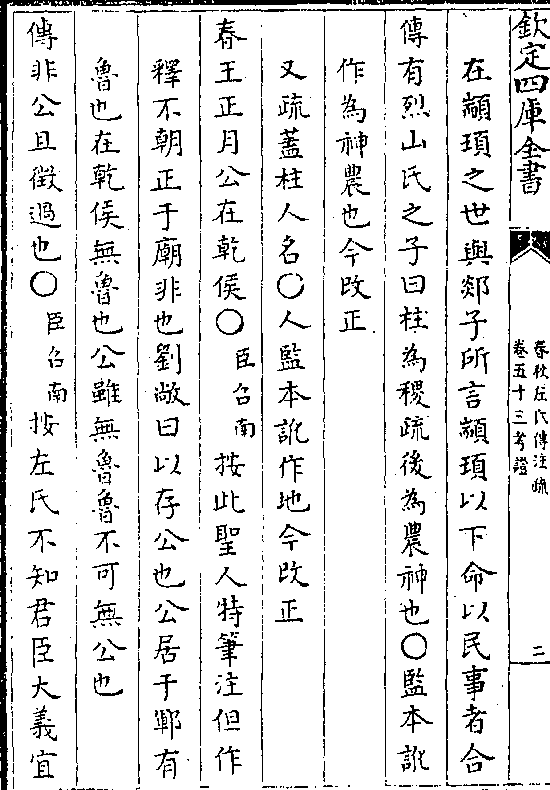 欽定四庫全書
春秋左氏傳注疏
卷五十三考證
二
在顓頊之世與郯子所言顓頊以下命以民事者合
傳有烈山氏之子曰柱為稷疏後為農神也○監本訛
作為神農也今改正
又疏蓋柱人名○人監本訛作地今改正
春王正月公在乾侯○臣召南按此聖人特筆注但作
釋不朝正于廟非也劉敞曰以存公也公居于鄆有
魯也在乾侯無魯也公雖無魯魯不可無公也
傳非公且徵過也○臣召南按左氏不知君臣大義宜